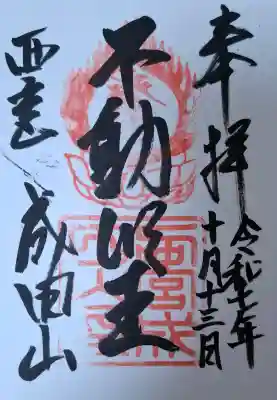 奉拝
令和年
十月十三日
不動明王
西宮
成田山